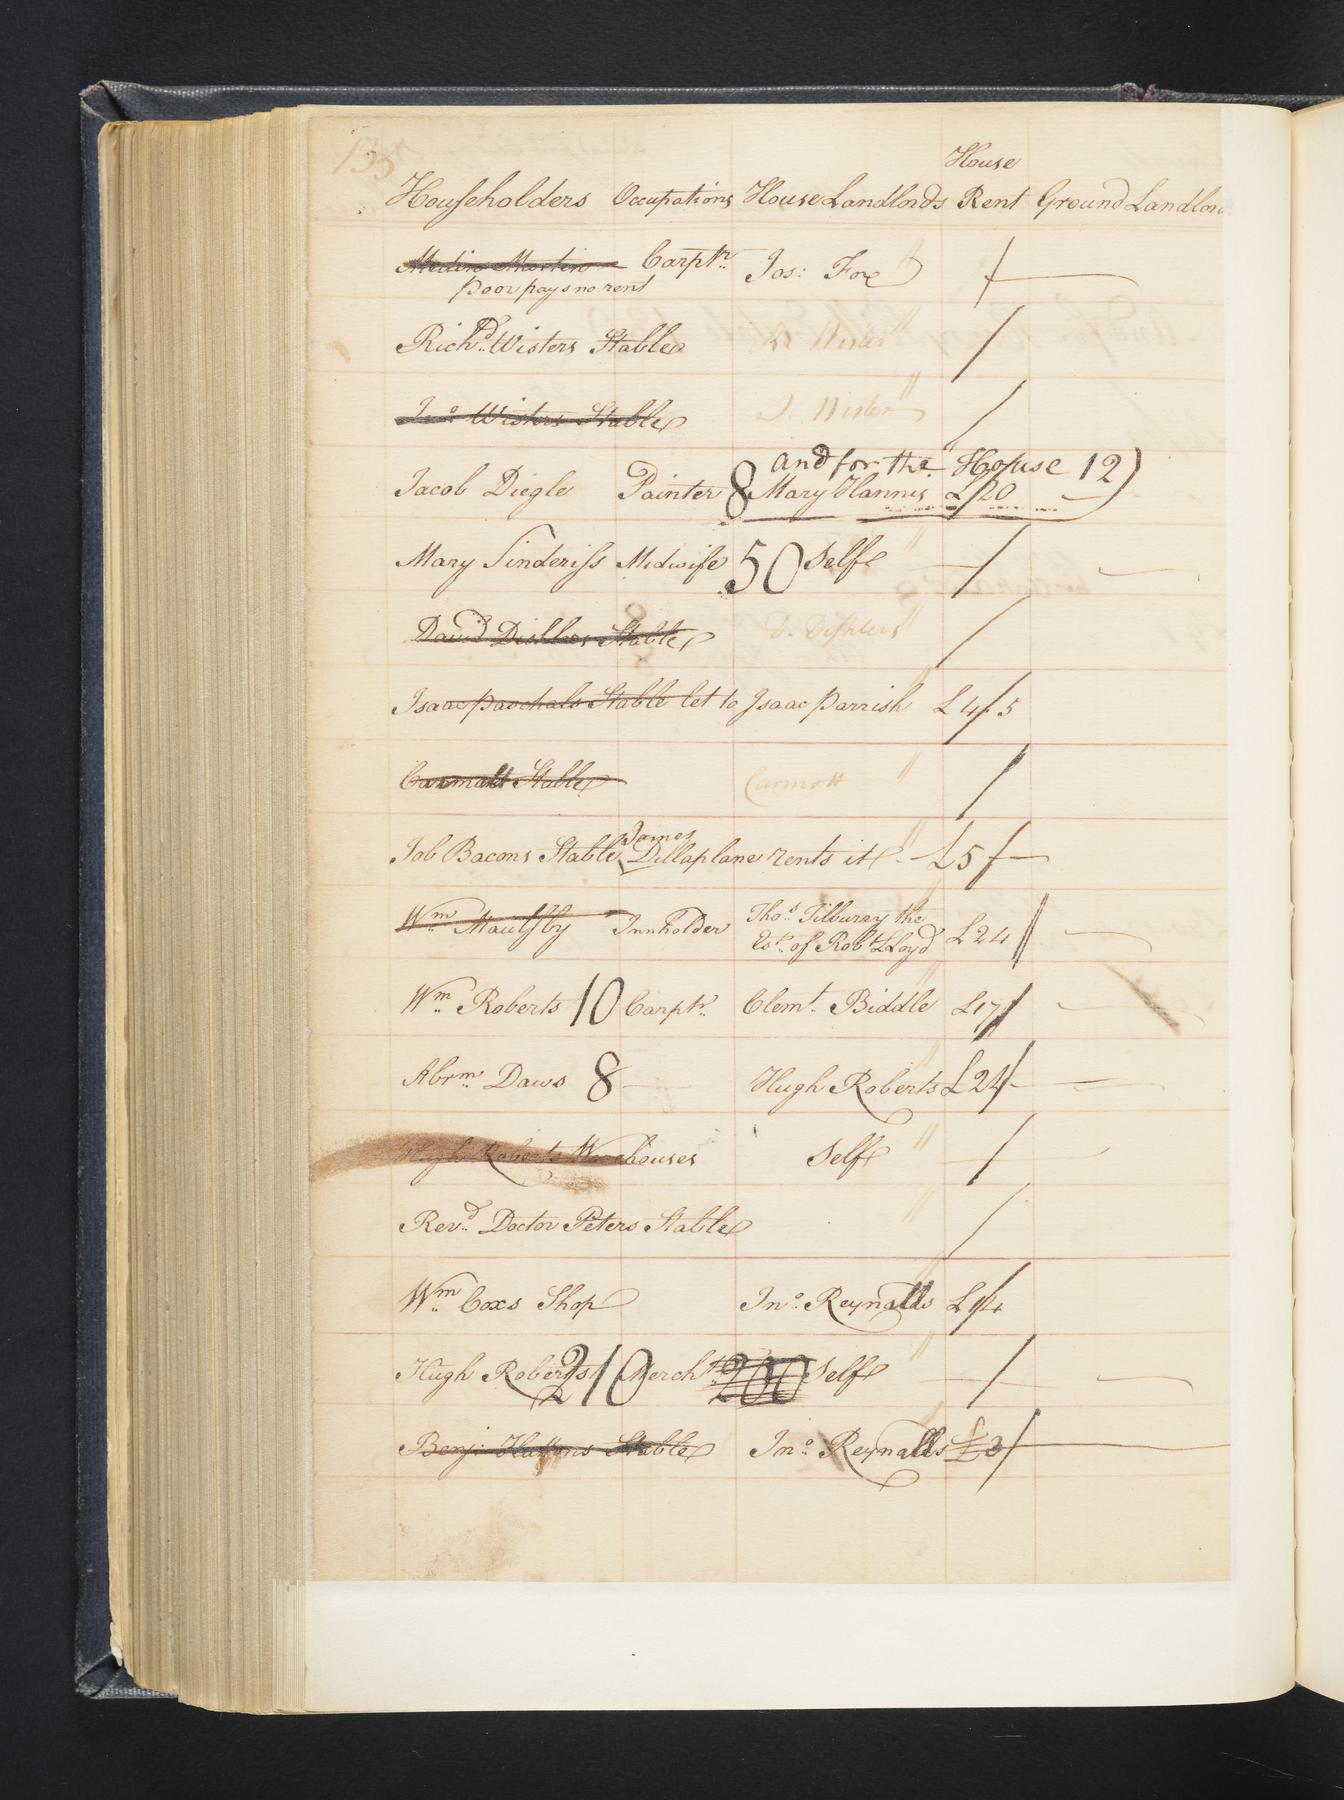 135
House
Householders Occupations House Landlords Rent Ground Landlor
Medin Martin Carptr. Jos: Fox "
Poor pays no rent
Richd. Wisters Stable R Wister "
Jno. Wisters Stable J. Wister "
and for the House 12)
Jacob Diegle Painter 8 Mary Hannis £20
Mary Sinderiss Midwife 50 Self "
David Dishlers Stable D. Dishlers "
Isaac Paschals Stable let to Isaac Parrish £4/5
Carmalt Stable Carmolt "
James
Job Bacons Stable, Dillaplane rents it £5
Wm. Maulsby Innholder Thos. Tilburry the
Est. of Robt. Lloyd £24
Wm. Roberts 10 Carptr. Clemt. Biddle £17
Abrm. Daws 8 Hugh Roberts £24
Hugh Roberts Warehouses Self "
Revd. Doctor Peters Stable "
Wm. Coxs Shop Jno. Reynalls £14
Hugh Roberts 210 Mercht. 200 Self "
Benj: Stable Jno. Reynalls £3